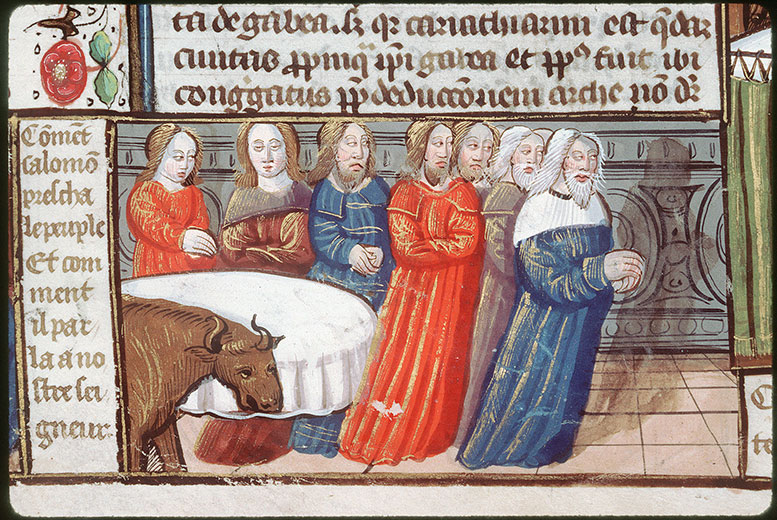 ta de gabea. Et qr cariathiarim est qdaz
ciuitas ppinq ipi gabea et ppls fuit ibi
congregatus pp deductionem arche nō dr
Cōment
salomō
prescha
le peuple
Et com
ment
il par
la a no
stre sei
gneur.